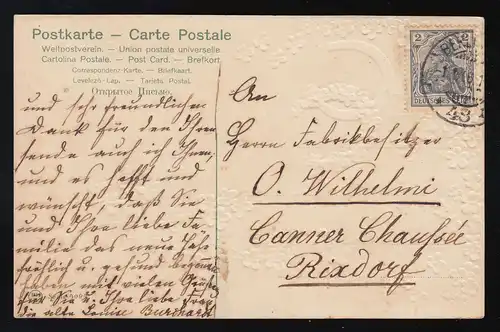 Postkarte – Carte Postale
Weltpostverein. – Union postale universelle.
Cartolina Postale. – Post Card. – Brefkort.
Correspondenz-Karte. – Briefkaart.
Levelező-Lap. – Tarjeta Postal.
Открытое Письмо.
und sehr freundlichen
Dank für den Ihren
sende auch ich Ihnen,
und es hofft und
wünscht, daß Sie
und Ihre liebe Fa-
milie das neue Jahr
fröhlich u. gesund begonnen
haben mit vielen Grüßen
Sie u. Ihre liebe Frau
die alte Louise Burchardt
An
Herrn Fabrikbesitzer
O. Wilhelmi
Canner Chaussée
Rixdorf
2 2
DEUTSCHES
BER
43